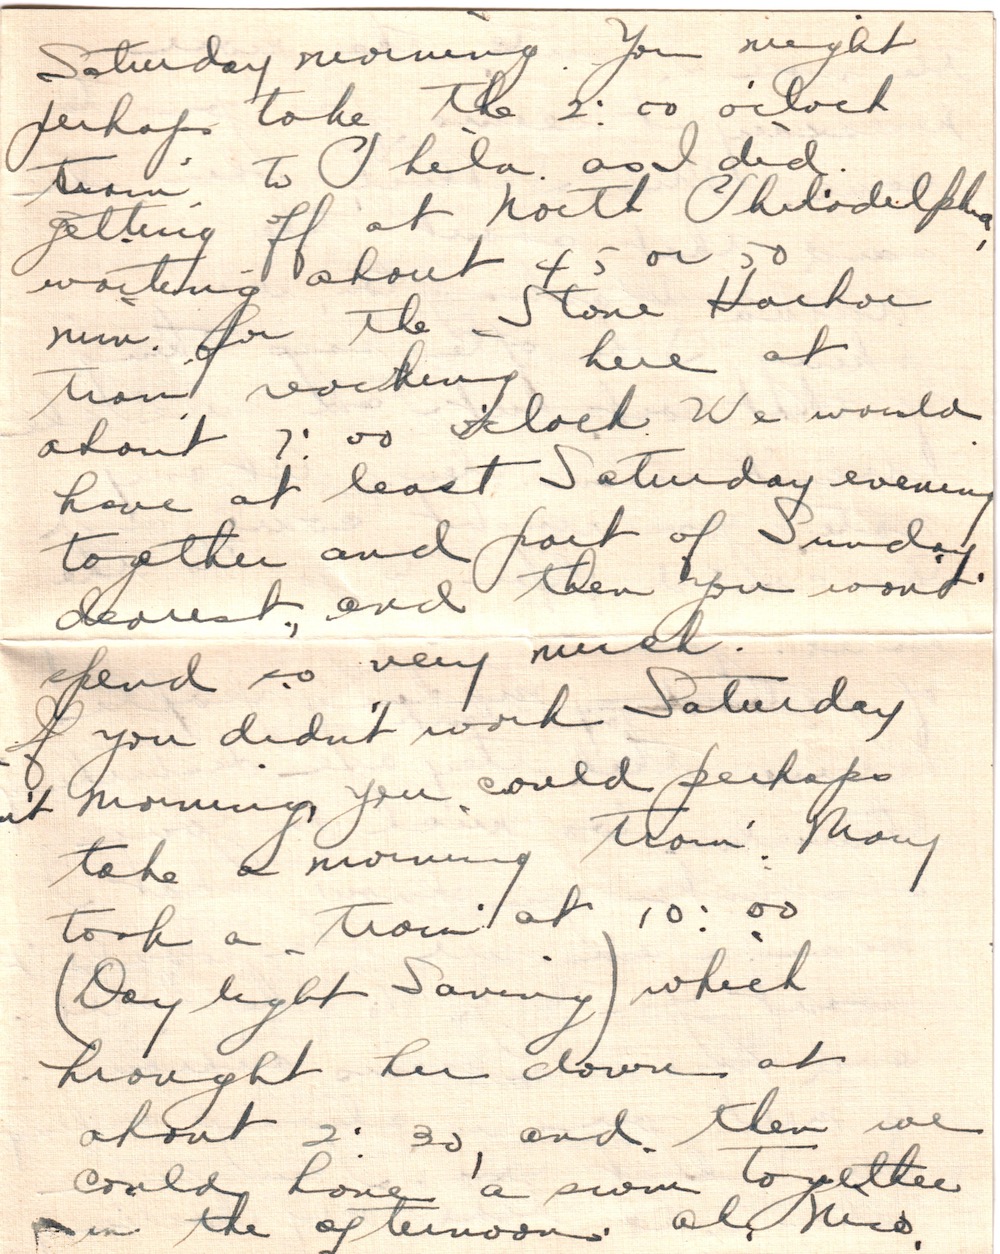 Saturday morning. You might
perhaps take the 2:00 o'clock
train to Phila. as I did.
getting off at North Philadelphia,
waiting about 45 or 50
min. for the Stone Harbor
train, reaching here at
about 7:00 o'clock. We would
have at least Saturday evening
together and part of Sunday
dearest, and then you won't
spend so very much.
If you didn't work Saturday
morning, you could perhaps
take a morning train. Mary
took a train at 10:00
(Day light Saving) which
brought her down at
about 2:30, and then we
could have a swim together
in the afternoon.